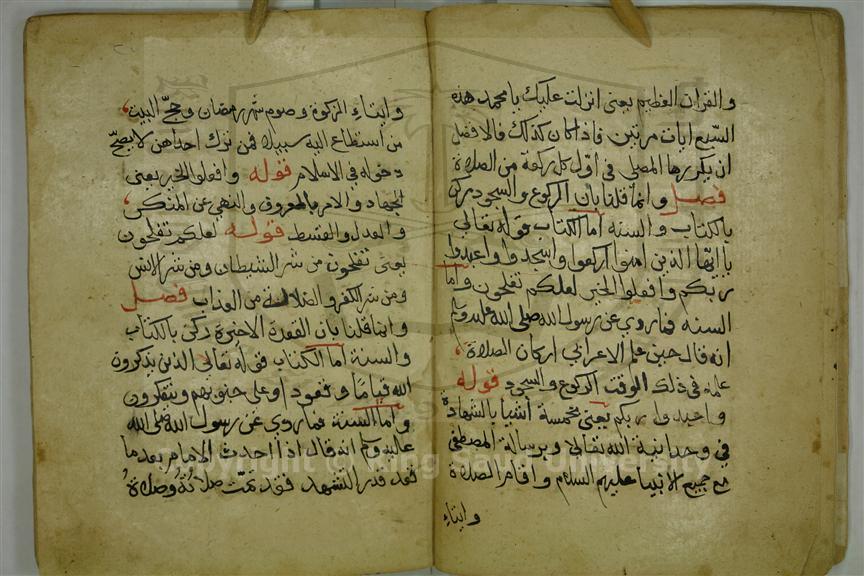 والقران العظيم يعنى انزلت عليك يا محمد هذه
السبع ايات مرتين فاذا كان كذلك فالافضل
ان يكررها المصلى فى اول كل ركعة من الصلاة
فصل وانما قلنا بان الركوع والسجود ركن
بالكتاب والسنه اما الكتاب قوله تعالى
يا ايها الذين امنوا اركعوا واسجدوا واعبدوا
ربكم وافعلوا الخير لعلكم تفلحون واما
السنه فماروي عن رسول الله صلى الله عليه وسلم
انه قال حين علم الاعرابي اركان الصلاة
علمه في ذلك الوقت الركوع والسجود قوله
واعبدوا ربكم يعنى بخمسة اشيا بالشهادة
في وحدانية الله تعالى وبرسالة المصطفى
مع جميع الانبيا عليهم السلام واقام الصلاة
وايتاء
وايتاء الزكوة وصوم شهر رمضان وحج البيت
من استطاع اليه سبيلا فمن ترك احداهن لا يصح
دخوله في الاسلام قوله وافعلوا الخير يعنى
الجهاد والامر بالمعروف والنهي عن المنكر
والعدل والقسط قوله لعلكم تفلحون
يعنى تفلحون من شر الشيطان ومن شر الانس
ومن شر الكفر والضلالة من العذاب فصل
وانما قلنا بان القعدة الاخيرة ركن بالكتاب
والسنة اما الكتاب قوله تعالى الذين يذكرون
الله قياما وقعودا وعلى جنوبهم ويتفكرون
واما السنة فماروي عن رسول الله صلى الله
عليه وسلم انه قال اذا احدث الامام بعد ما
قعد قدر التشهد فقد تمت صلاته وصلاة
Copyright © King Saud University